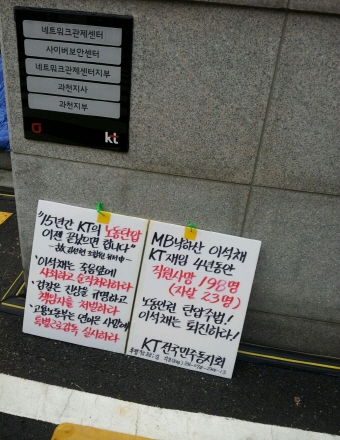 네트워크관제센터
사이버보안센터
네트워크관제센터지부
과천지사
과천지부
kt
"15년간 KT의 노동탄압
이젠 끝났으면 합니다"
'이석채는 죽음앞에
사죄하고 순직처리하라
'검찰은 진상을 규명하고
책임자를 처벌하라
'고용노동부는 연이은 사망에
특별근로감독 실시하라
MB낙하산 이석채
KT재임 4년동안
직원사망 198명
(자살 23명)
노동인권 탄압주범!
이석채는 퇴진하라!
KT전국민주동지회